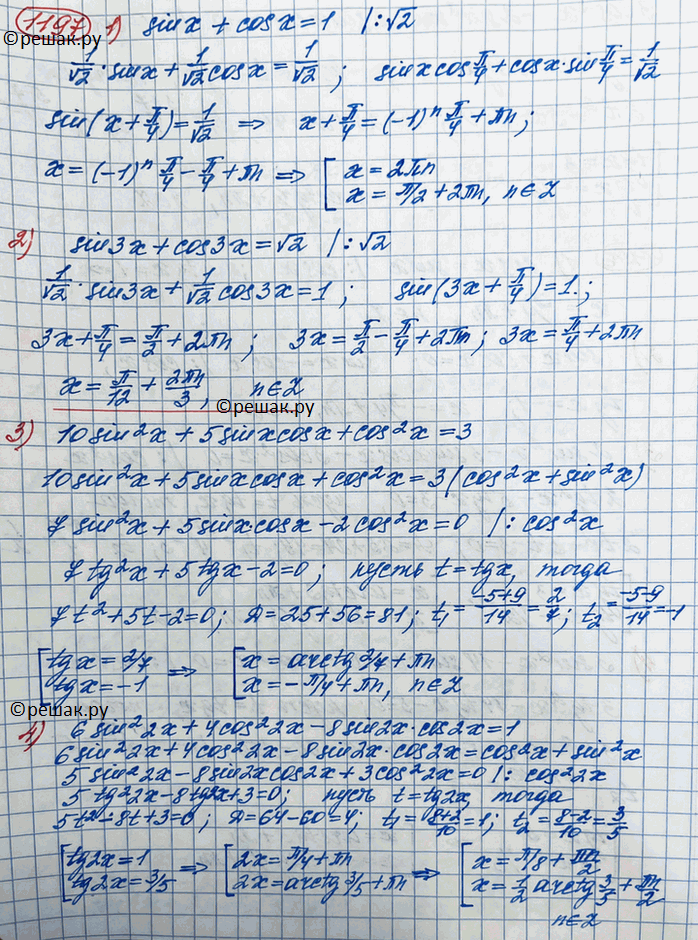 1197 1) sin x + cos x = 1 | : √2
©решак.ру
1/√2 · sin x + 1/√2 cos x = 1/√2 ; sin x cos π/4 + cos x · sin π/4 = 1/√2
sin(x + π/4) = 1/√2 ⇒ x + π/4 = (-1)ⁿ π/4 + πn;
x = (-1)ⁿ π/4 - π/4 + πn ⇒ [ x = 2πn
x = π/2 + 2πn, n∈Z
2) sin3x + cos3x = √2 | : √2
1/√2 · sin3x + 1/√2 cos3x = 1 ; sin(3x + π/4) = 1. ;
3x + π/4 = π/2 + 2πn ; 3x = π/2 - π/4 + 2πn ; 3x = π/4 + 2πn
x = π/12 + 2πn/3, n∈Z
©решак.ру
3) 10 sin²x + 5 sin x cos x + cos²x = 3
10 sin²x + 5 sin x cos x + cos²x = 3(cos²x + sin²x)
7 sin²x + 5 sin x cos x - 2 cos²x = 0 | : cos²x
7 tg²x + 5 tg x - 2 = 0 ; пусть t = tg x, тогда
7t² + 5t - 2 = 0 ; D = 25 + 56 = 81 ; t₁ = -5+9/14 = 2/7 ; t₂ = -5-9/14 = -1
[ tg x = 2/7 ⇒ [ x = arctg 2/7 + πn
tg x = -1 x = -π/4 + πn, n∈Z
©решак.ру
4) 6 sin²2x + 4 cos²2x - 8 sin2x · cos2x = 1
6 sin²2x + 4 cos²2x - 8 sin2x · cos2x = cos²x + sin²x
5 sin²2x - 8 sin2x cos2x + 3 cos²2x = 0 | : cos²2x
5 tg²2x - 8 tg2x + 3 = 0 ; пусть t = tg2x, тогда
5t² - 8t + 3 = 0 ; D = 64 - 60 = 4 ; t₁ = 8+2/10 = 1 ; t₂ = 8-2/10 = 3/5
[ tg2x = 1 ⇒ [ 2x = π/4 + πn ⇒ [ x = π/8 + πn/2
tg2x = 3/5 2x = arctg 3/5 + πn x = 1/2 arctg 3/5 + πn/2
n∈Z